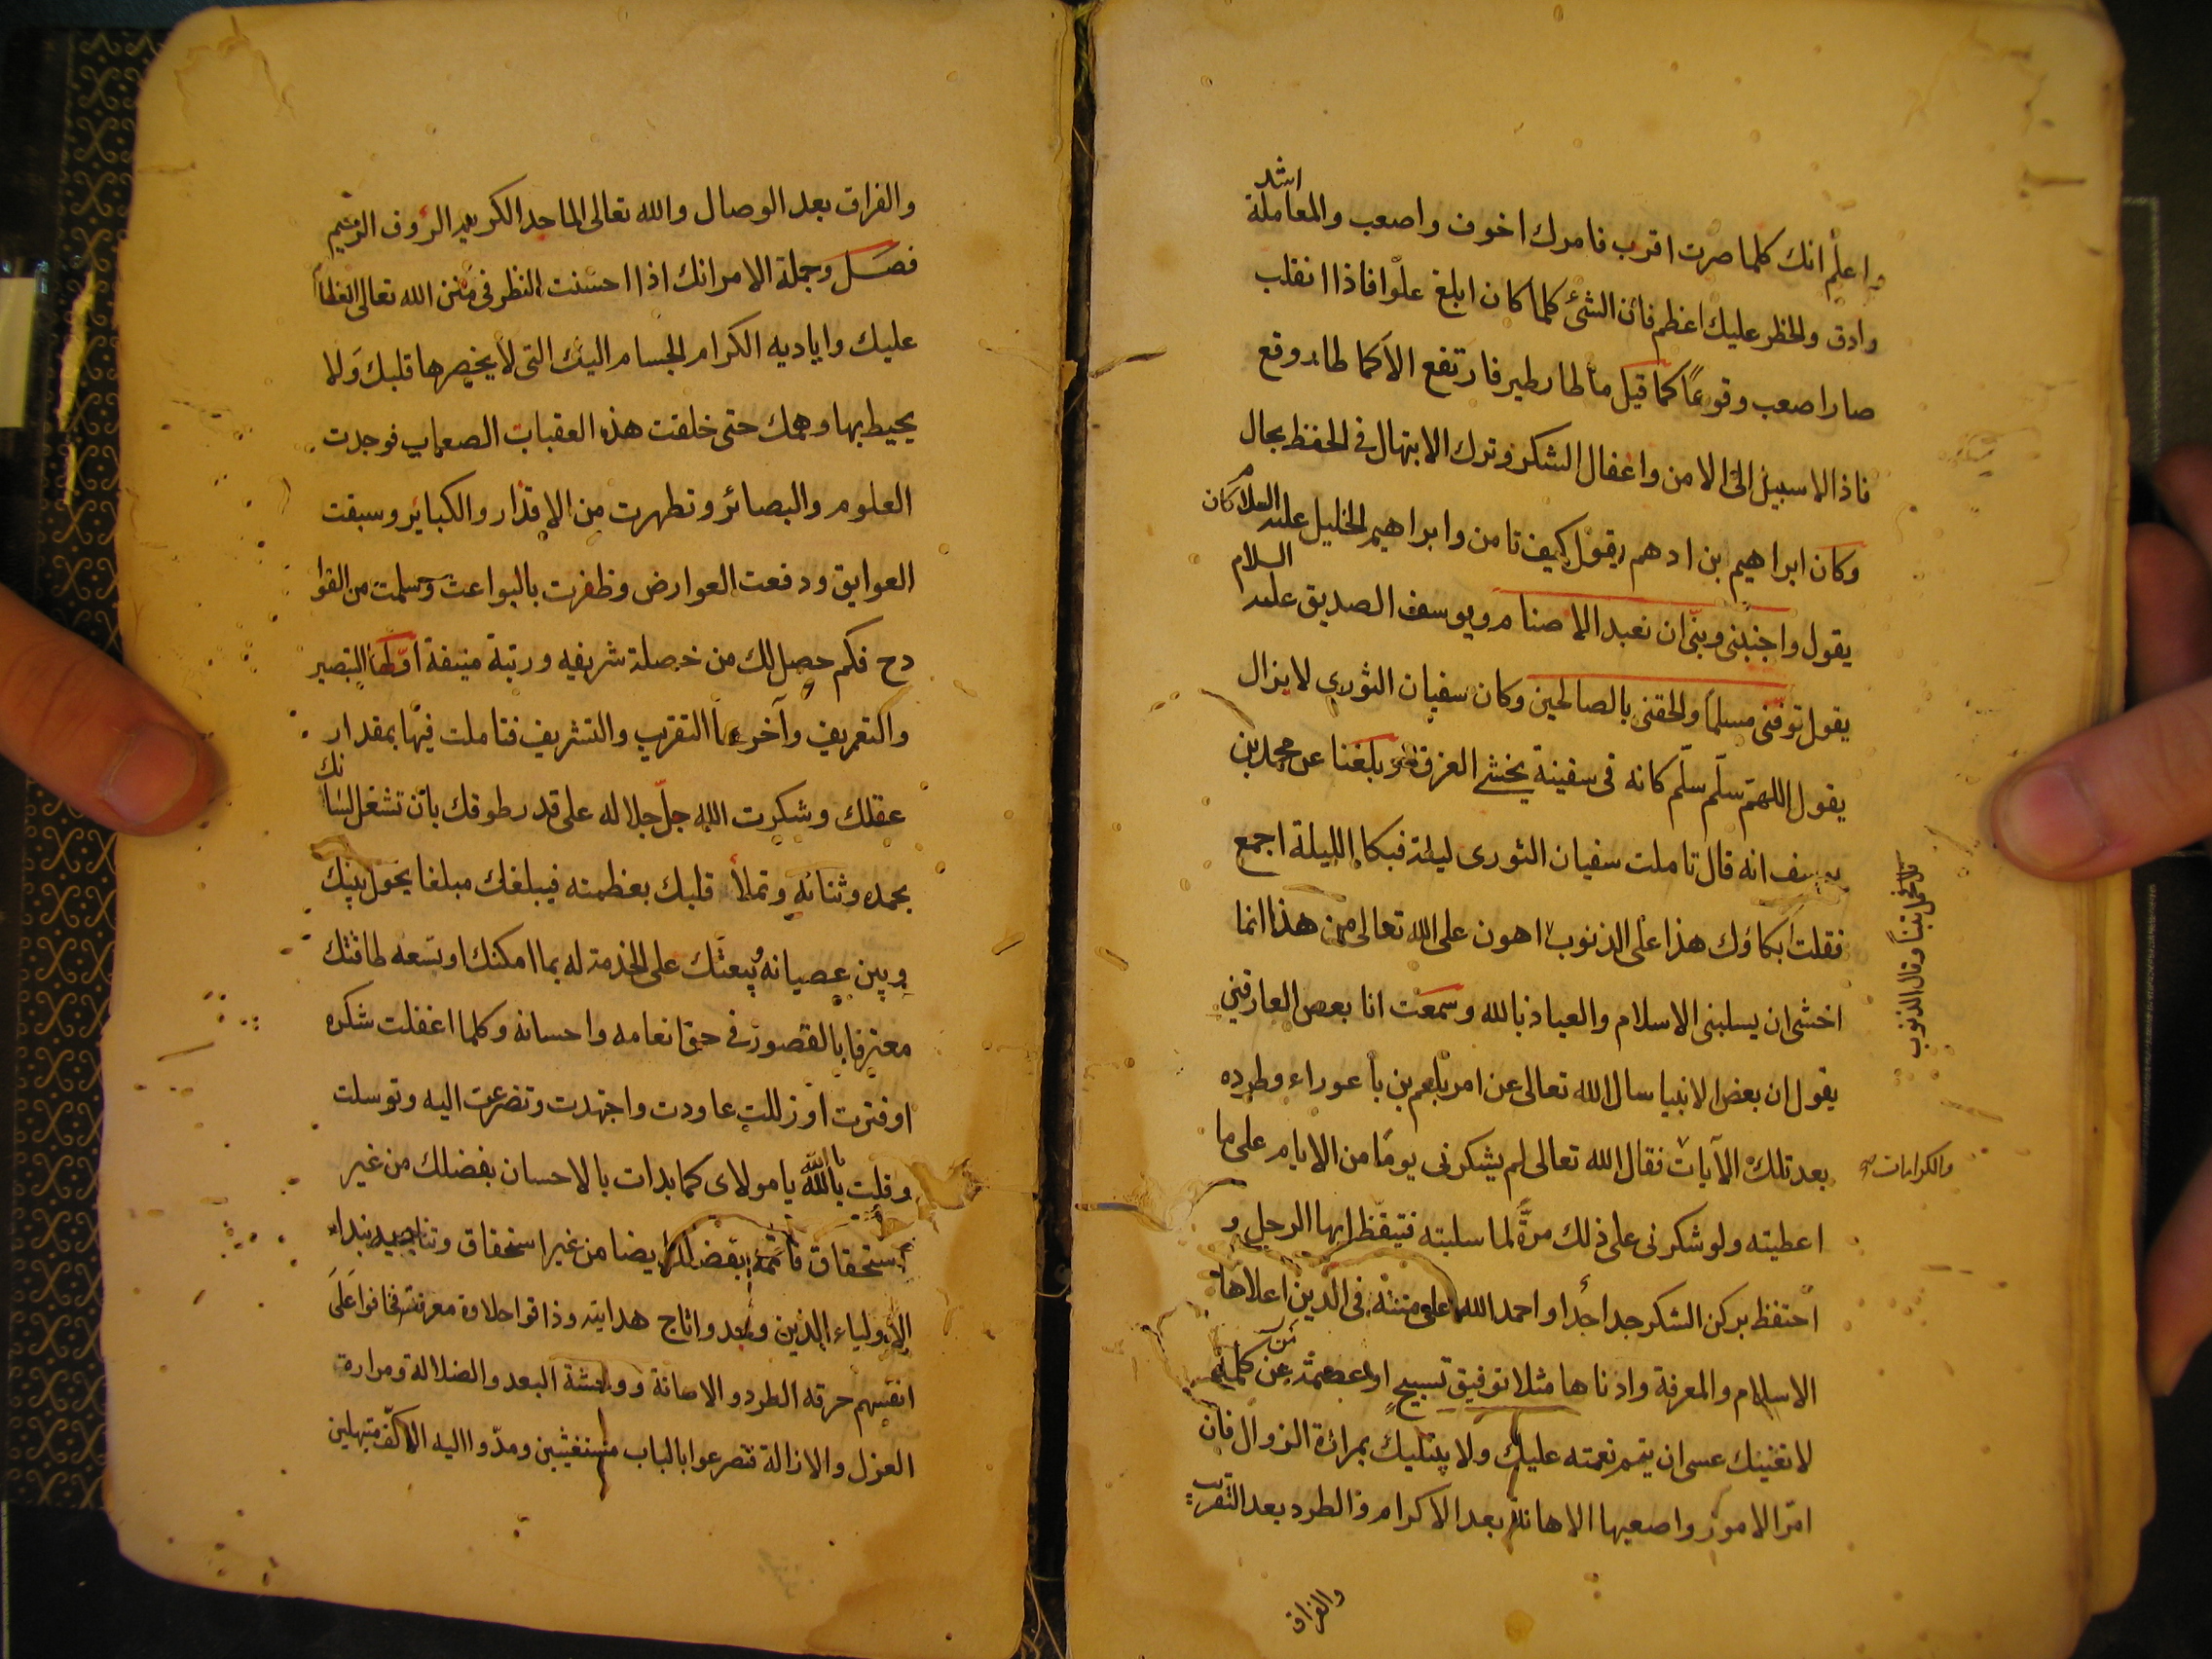 واعلم انك كلما صرت اقرب فامرك اخوف واصعب والمعاملة اشد
وادق والخطر عليك اعظم فان الشئ كلما كان ابلغ علوا فاذا انقلب
صار اصعب وقوعًا كما قيل ما طار طير فارتفع الا كما طار وقع
فاذا لا سبيل الى الامن واغفال الشكر وترك الابتهال فى الحفظ بحال
وكان ابراهيم بن ادهم يقول كيف تامن وابراهيم الخليل عليه السلام كان
يقول واجنبنى وبنىّ ان نعبد الاصنام ويوسف الصديق عليه السلام
يقول توفنى مسلما والحقنى بالصالحين وكان سفيان الثورى لا يزال
يقول اللهم سلّم سلّم كانه فى سفينة يخشى الغرق وبلغنا عن محمد بن
يوسف انه قال تاملت سفيان الثورى ليلة فبكا الليلة اجمع
فقلت ابكاؤك هذا على الذنوب اهون على الله تعالى من هذا انما
فحمل تبنًا وقال الذنوب
اخشى ان يسلبنى الاسلام والعياذ بالله وسمعت انا بعض العارفين
يقول ان بعض الانبيا سال الله تعالى عن امر بلعم بن باعوراء وطرده
بعد تلك الآيات فقال الله تعالى لم يشكرنى يومًا من الايام على ما
والكرامات صح
اعطيته ولو شكرنى على ذلك مرةً لما سلبته فتيقظ ايها الرجل و
احتفظ بركن الشكر جدا جدا واحمد الله على مننه فى الدين اعلاها
الاسلام والمعرفة وادناها مثلا توفيق تسبيح او عصمة عن كلمة
لا تعنيك عسى ان يتم نعمته عليك ولا يبتليك بمرارة الزوال فان
امرّ الامور واصعبها الاهانة بعد الاكرام والطرد بعد التقريب
والفراق
والفراق بعد الوصال والله تعالى الماجد الكريم الرؤف الرحيم
فصل وجملة الامر انك اذا احسنت النظر فى منن الله تعالى العظام
عليك واياديه الكرام الجسام اليك التى لا يحصرها قلبك ولا
يحيط بها وهمك حتى خلفت هذه العقبات الصعاب فوجدت
العلوم والبصائر وتطهرت من الاقذار والكبائر وسبقت
العوايق ودفعت العوارض وظفرت بالبواعث وسلمت من القوا
دح فكم حصل لك من خصلة شريفه ورتبة منيفة اولها التبصير
والتعريف وآخرها التقريب والتشريف فتاملت فيها بمقدار
عقلك وشكرت الله جلّ جلاله على قدر طوقك بان تشغل لسانك
بحمده وثنائه وتملأ قلبك بعظمته فيبلغك مبلغا يحول بينك
وبين عصيانه ويبعثك على الخدمة له بما امكنك او تسعه طاقتك
معترفا بالقصور فى حق انعامه واحسانه وكلما اغفلت شكره
او فترت او زللت عاودت واجتهدت وتضرعت اليه وتوسلت
وقلت يا الله يا الله يا مولاى كما بدات بالاحسان بفضلك من غير
استحقاق فاتمه بفضلك ايضا من غير استحقاق وتناجيه بنداء
الاولياء الذين وجدوا تاج هدايته وذاقوا حلاوة معرفته فخافوا على
انفسهم حرقه الطرد والاهانة ووحشة البعد والضلالة ومرارة
العزل والازالة فتضرعوا بالباب مستغيثين ومدّوا اليه الاكفّ مبتهلين